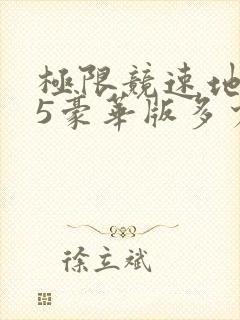 極限競速地
5豪華版多
徐立斌